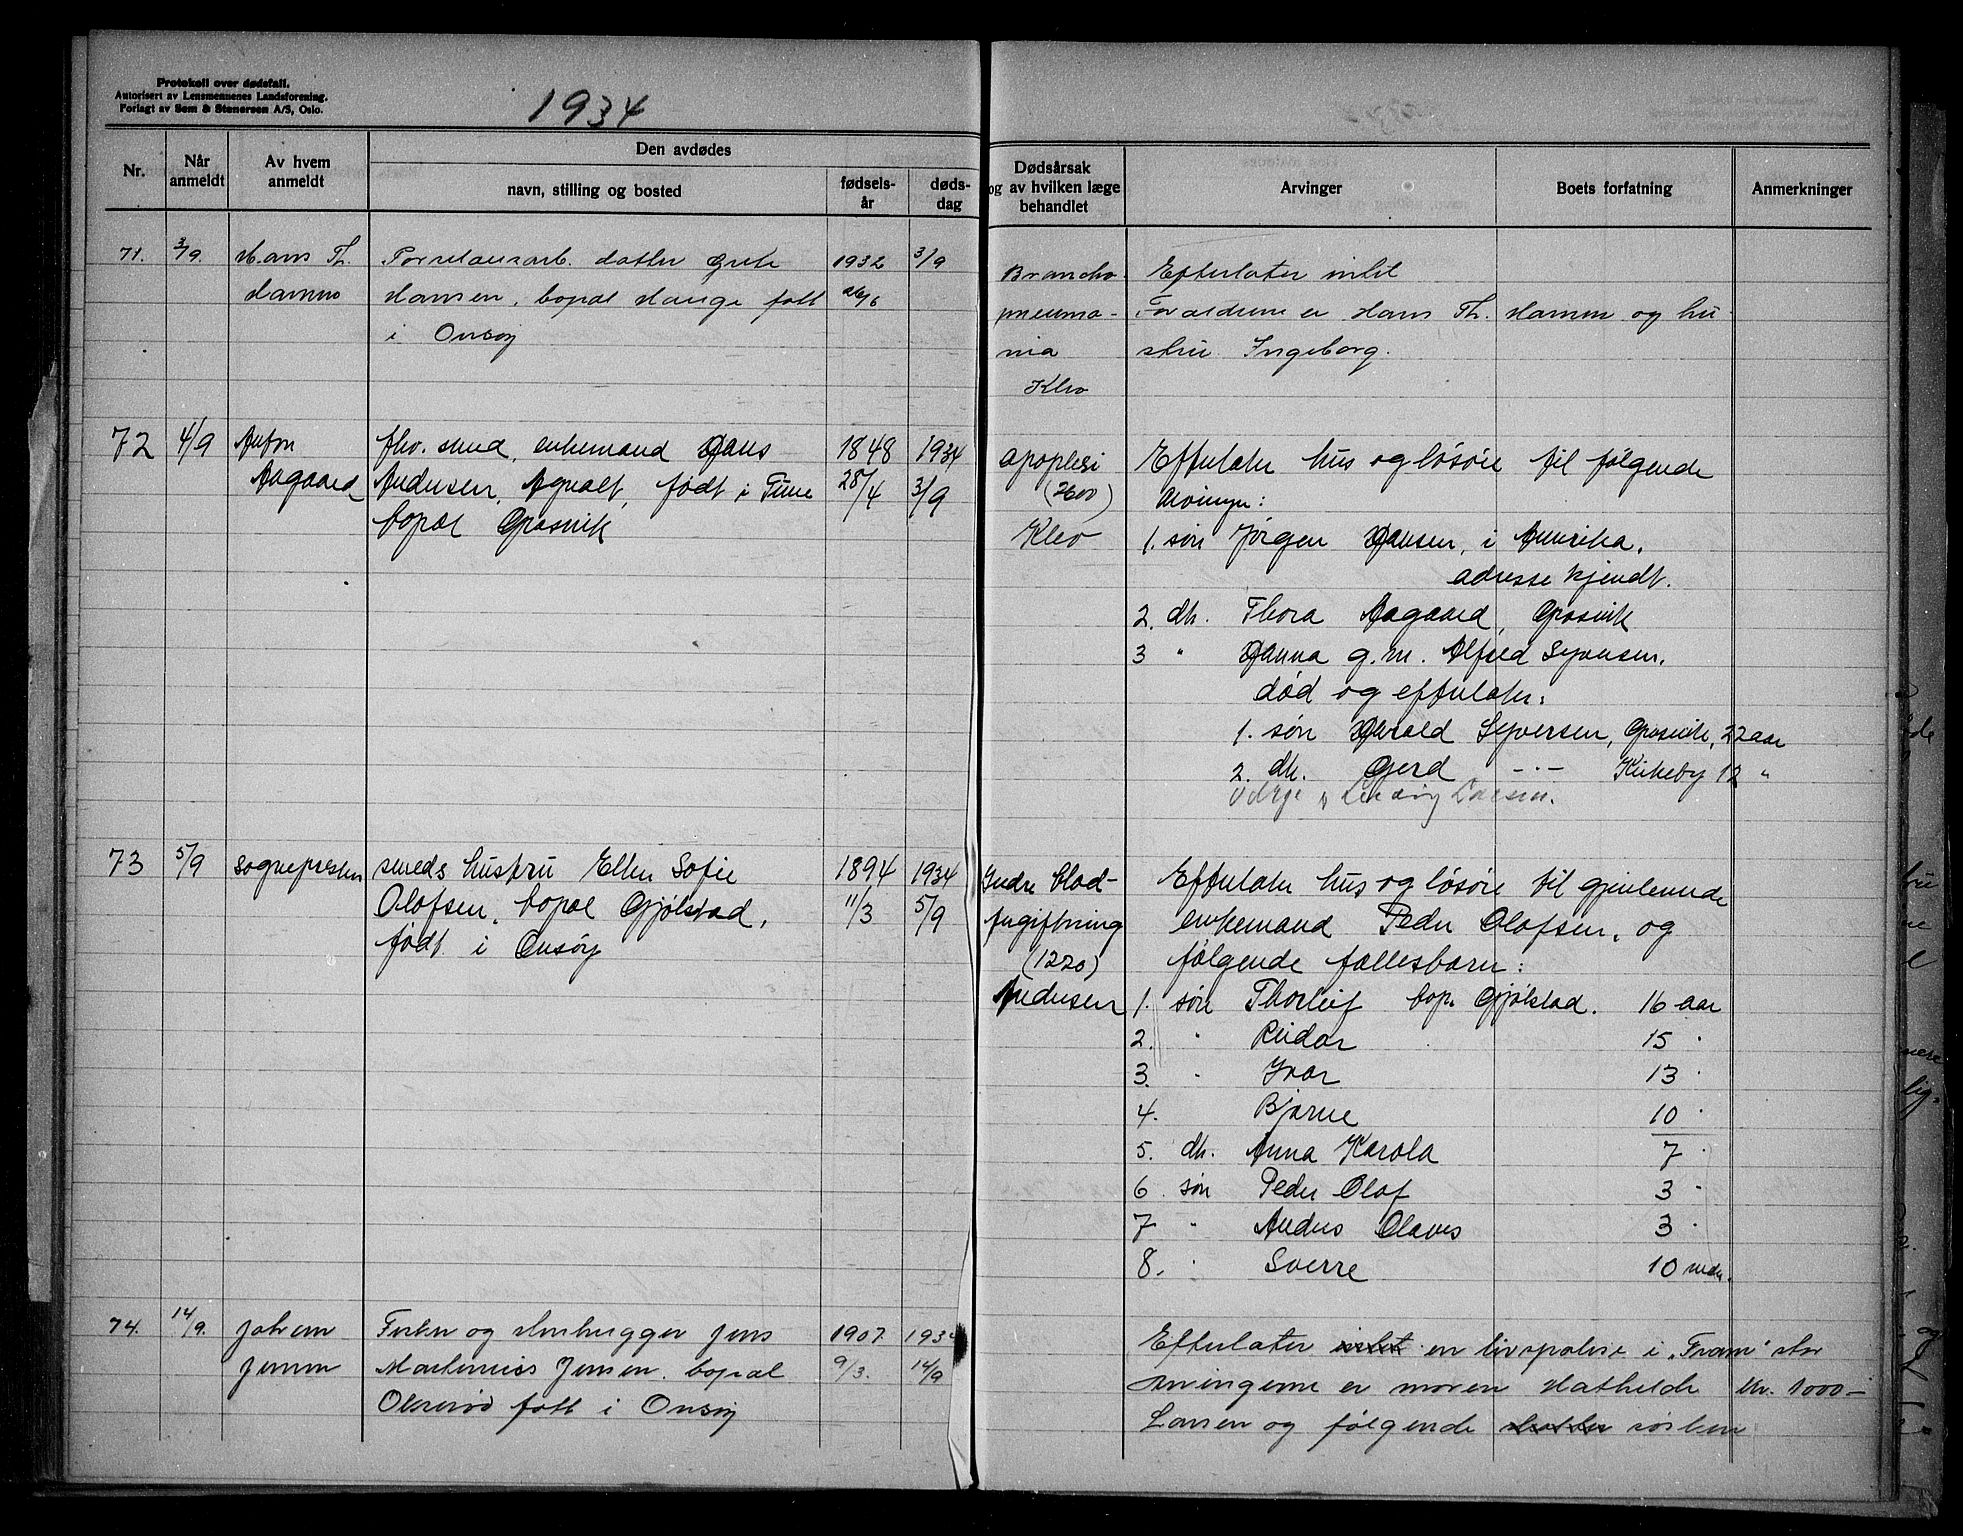 Protokoll over dødsfall.
Autorisert av Lensmennenes Landsforening.
Forlagt av Sem & Stenersen A/S, Oslo.
1934
Nr.
Når anmeldt
Av hvem anmeldt
Den avdødes
navn, stilling og bosted
fødselsår
dødsdag
Dødsårsak og av hvilken læge behandlet
Arvinger
Boets forfatning
Anmerkninger
71. 3/9. Hans Th. datter Grete 1932 3/9
Hansen, bopæl Hauge født 26/6
i Onsøy
Broncho-
pneumo-
nia
Klev
Efterlater intet
Forældrene er Hans Th. Hamm og hu-
stru Ingeborg.
72 4/9 Anton fhv. smed, enkemand Hans 1848 1934
Aagaard Andersen, Agnalt, født i Tune 28/4 3/9
bopæl Græsvik
apoplexi
(2600)
Klev
Efterlater hus og løsøre til følgende
arvinger:
1. søn Jørgen Hansen, i Amerika.
adresse kjendt.
2. dtr. Thora Aagaard, Græsvik
3 " Hanna g.m. Alfred Syversen.
død og efterlater:
1. søn Harald Syversen, Græsvik, 22 aar
2. dtr. Gerd -"- Kirkeby 12 "
Verge Ludvig Larsen.
73 5/9 sognepresten smeds hustru Ellen Sofie 1894 1934
Olafsen, bopæl Gjølstad, 11/3 5/9
født i Onsøy
Indre blod-
forgiftning
(1220)
Andersen
Efterlater hus og løsøre til gjenlevende
enkemand Peder Olafsen, og
følgende fællesbarn:
1. søn Thorleif bop. Gjølstad. 16 aar
2. " Reidar 15 "
3. " Ivar 13 "
4. Bjarne 10 "
5. dtr. Anna Karola 7 "
6 søn Peder Olaf 3 "
7 " Anders Olaves 3 "
8. " Sverre 10 mdr.
74. 14/9. Johan Fisker og stenhugger Jens 1907 1934
Jensen Marthinius Jensen, bopæl 9/3. 14/9
født i Onsøy
Efterlater intet en livspolise i "Fram" stor
arvingerne er moren Mathilde kr. 1000-
Larsen og følgende søsken